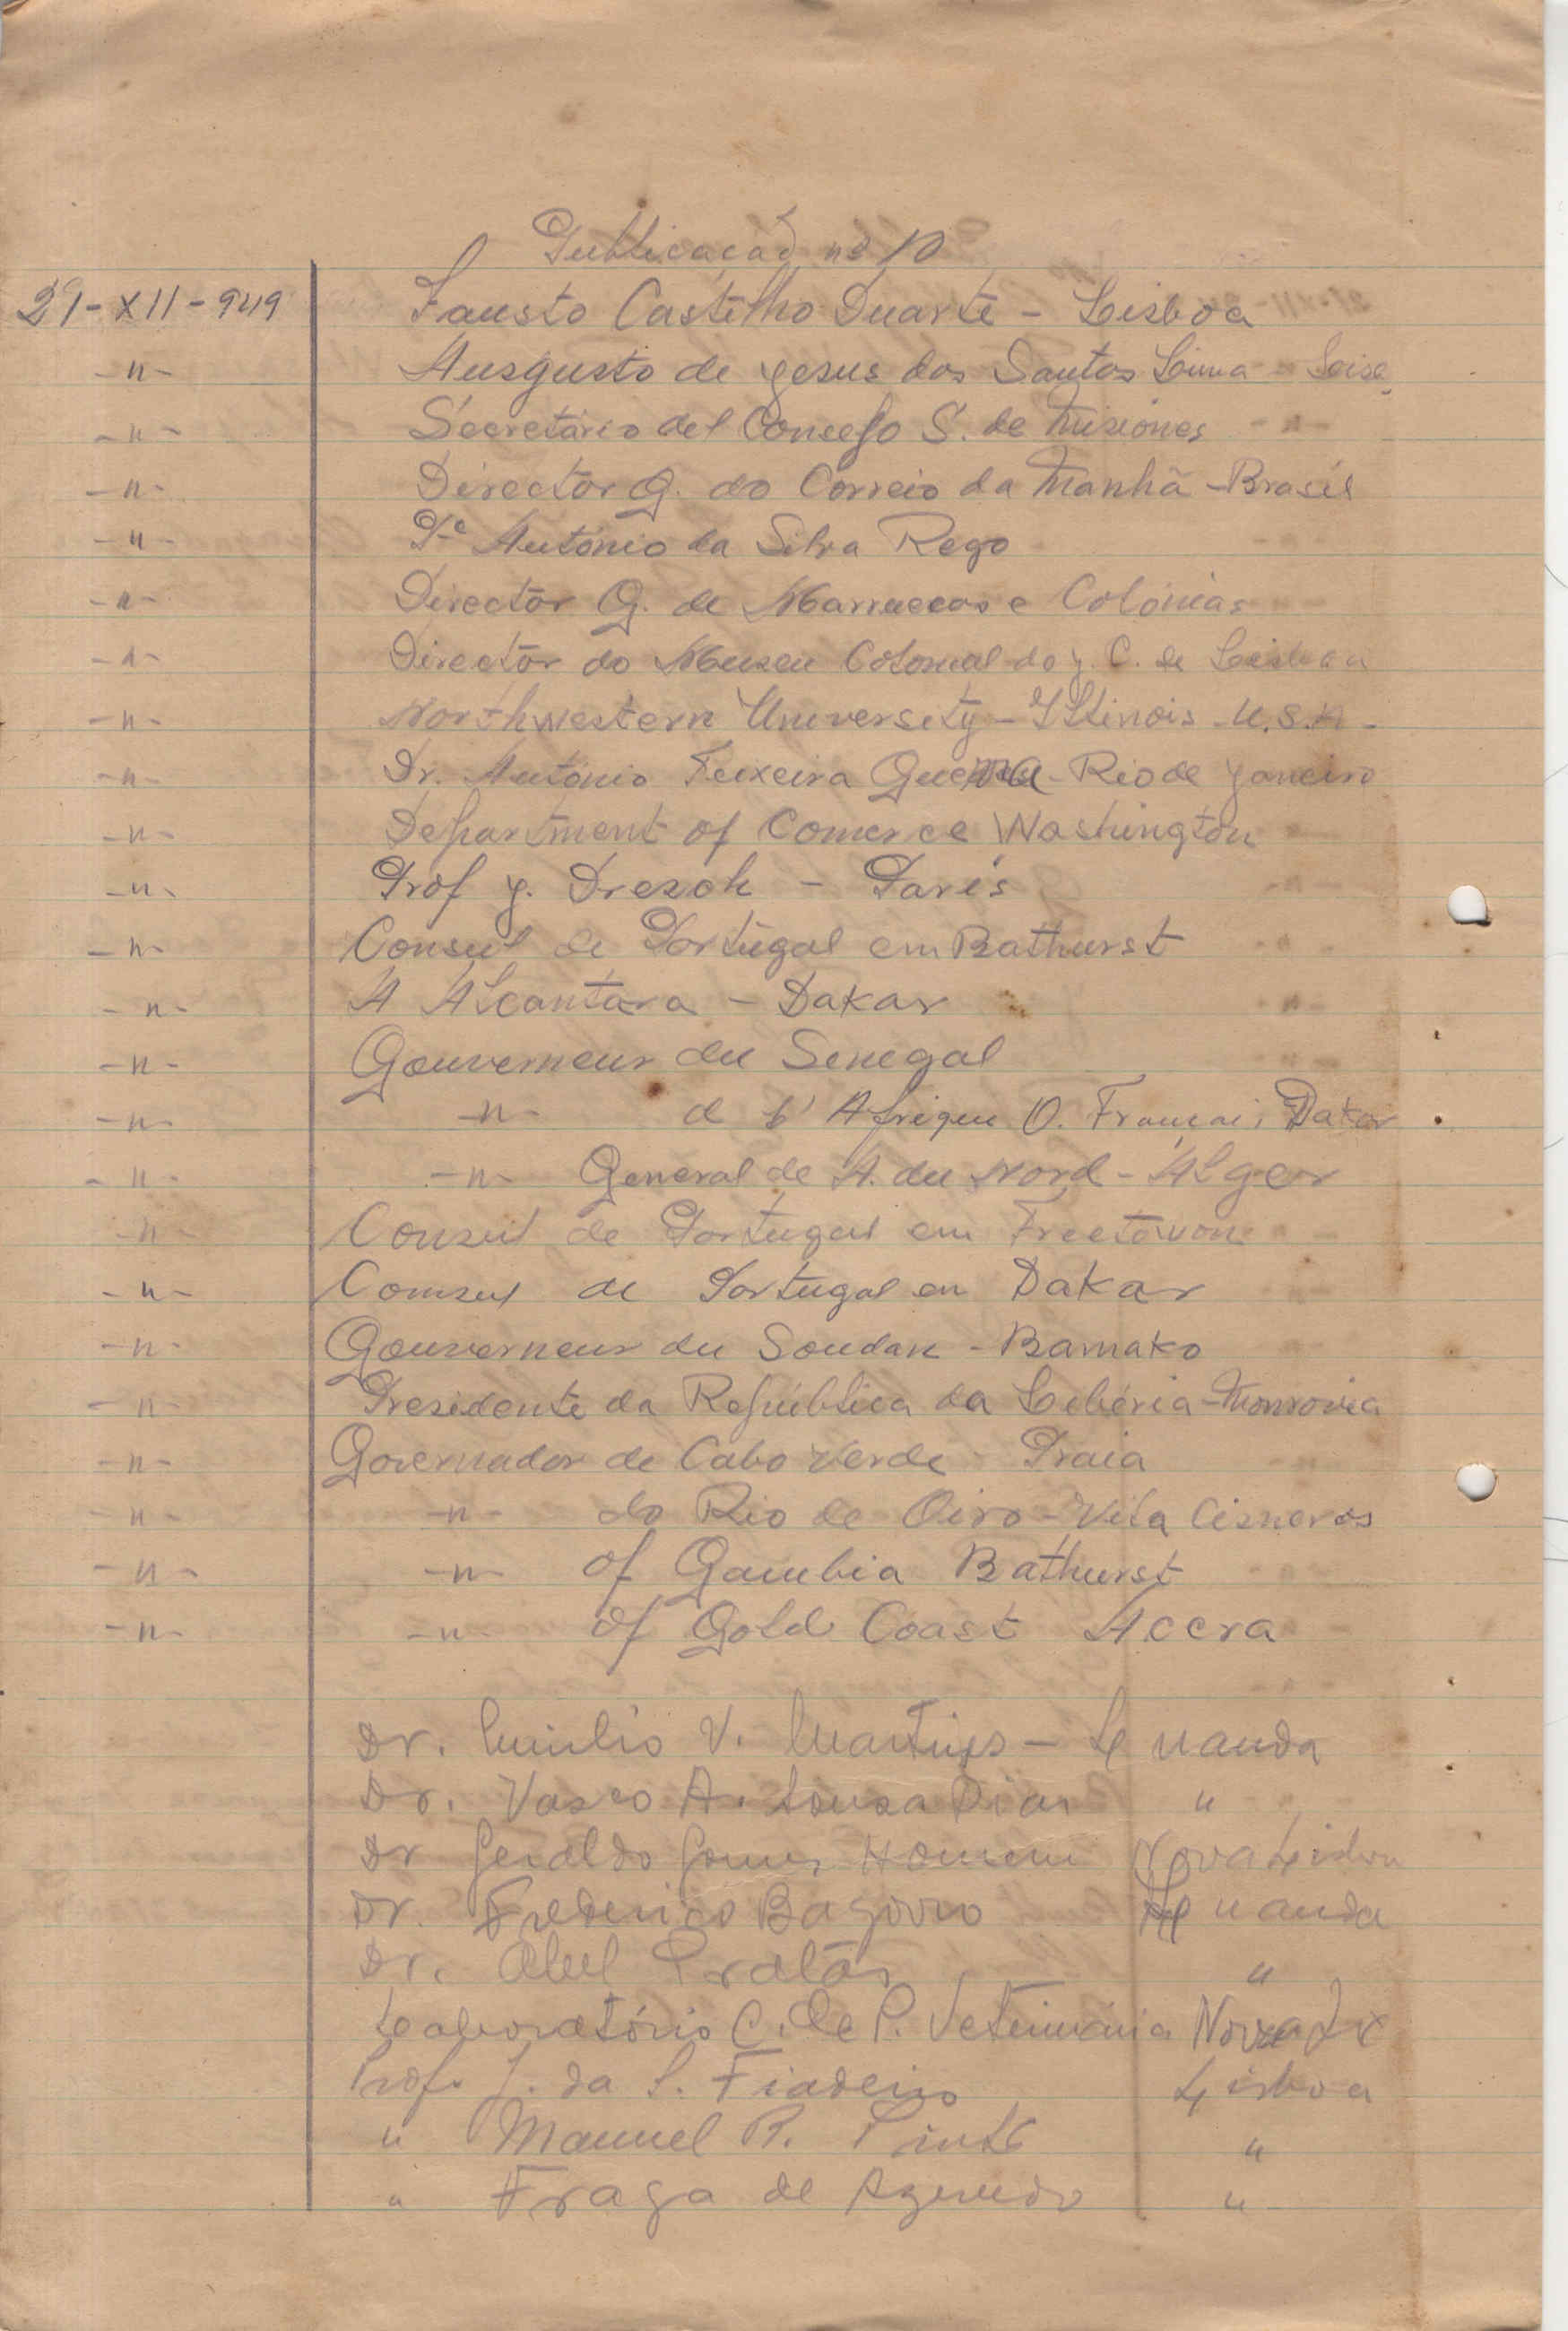 Publicação nº 10
21-XII-949 Fausto Castelho Duarte - Lisboa
-"- Ausgusto de Jesus dos Santos Lima - Lisb.
-"- Secretário del Consejo S. de Misiones -"-
-"- Director G. do Correio da Manhã - Brasil
-"- Pe António da Silva Rego
-"- Director G. de Marruecos e Colónias
-"- Director do Museu Colonial da J. C. de Lisboa
-"- Northwestern University - Illinois U.S.A -
-"- Dr. António Teixeira Guerra - Rio de Janeiro
-"- Department of Comerce Washington
-"- Prof J. Dresch - Paris
-"- Consul de Portugal em Bathurst
-"- A Alcantara - Dakar
-"- Gouverneur du Senegal
-"- -"- d l'Afrique O. Françai, Dakar
-"- -"- General de A. du Nord - Alger
-"- Consul de Portugal em Freetown
-"- Consul de Portugal en Dakar
-"- Gouverneur du Soudan - Bamako
-"- Presidente da República da Libéria - Monrovia
-"- Governador de Cabo Verde - Praia
-"- -"- do Rio de Oiro - Vila Cisneros
-"- -"- of Gambia Bathurst
-"- -"- of Gold Coast Accra
Dr. Emilio V. Martins - Luanda
Dr. Vasco A. Sousa Dias "
Dr Geraldo Gomes Homem Nova Lisboa
Dr. Frederico Bagorro Luanda
Dr. Abel Pratas "
Laboratório C. de P. Veterinária Nova Lx
Prof. J. da S. Fiadeiro Lisboa
" Manuel R. Pinto "
" Fraga de Azevedo "